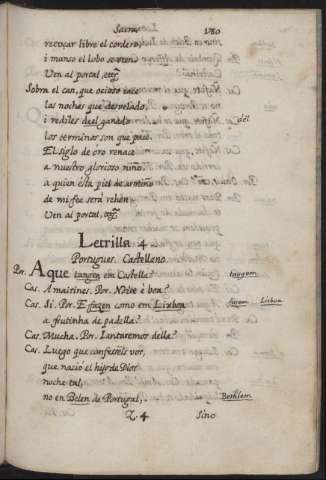 Sacras 180
retoçar libre el cordero,
i manso el lobo se vera.
Ven al portal, etc.
Sobre el can, que ocioso iace
las noches que desvelado,
i rediles del ganado del
los terminos son que pace.
El siglo de oro renace
a nuestro glorioso niño,
a quien esta piel de armiño
de mi fee será rehén.
Ven al portal, etc.
Letrilla 4
Portugues. Castellano.
Por. A que tangem em Castella? tangem
Cas. A maitines. Por. Noite é boa?
Cas. Si. Por. E fazen como em Lixboa fazem Lisboa
a frutinha de padella?
Cas. Mucha. Por. Iantaremos della?
Cas. Luego que confesseis vos,
que nació el hijo de Dios
noche tal,
no en Belen de Portugal, Bethlem
Z. 4 Sino